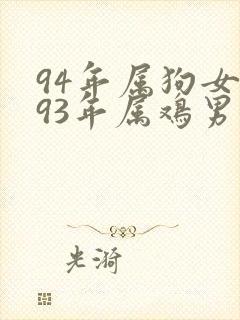 94年属狗女
93年属鸡男
光漪